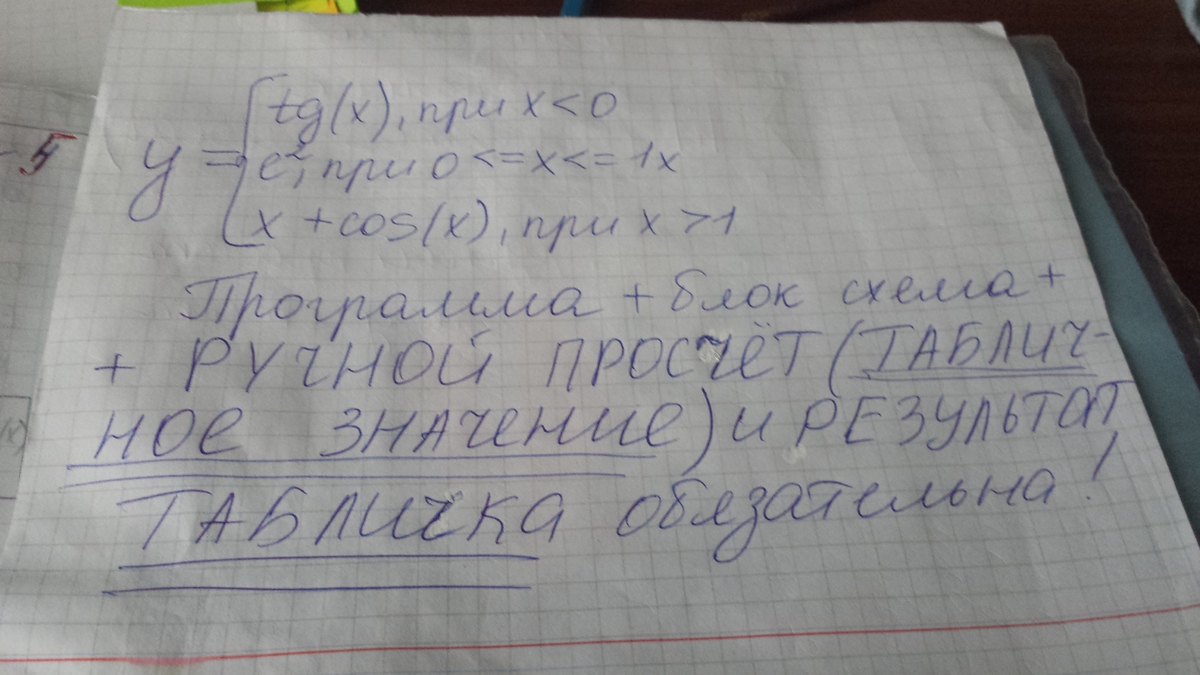 tg(x), при x < 0
y = e², при 0 <= x <= 1x
x + cos(x), при x > 1
Программа + блок схема +
+ РУЧНОЙ ПРОСЧЁТ (ТАБЛИЧ-
НОЕ ЗНАЧЕНИЕ) И РЕЗУЛЬТАТ
ТАБЛИЧКА обязательна!